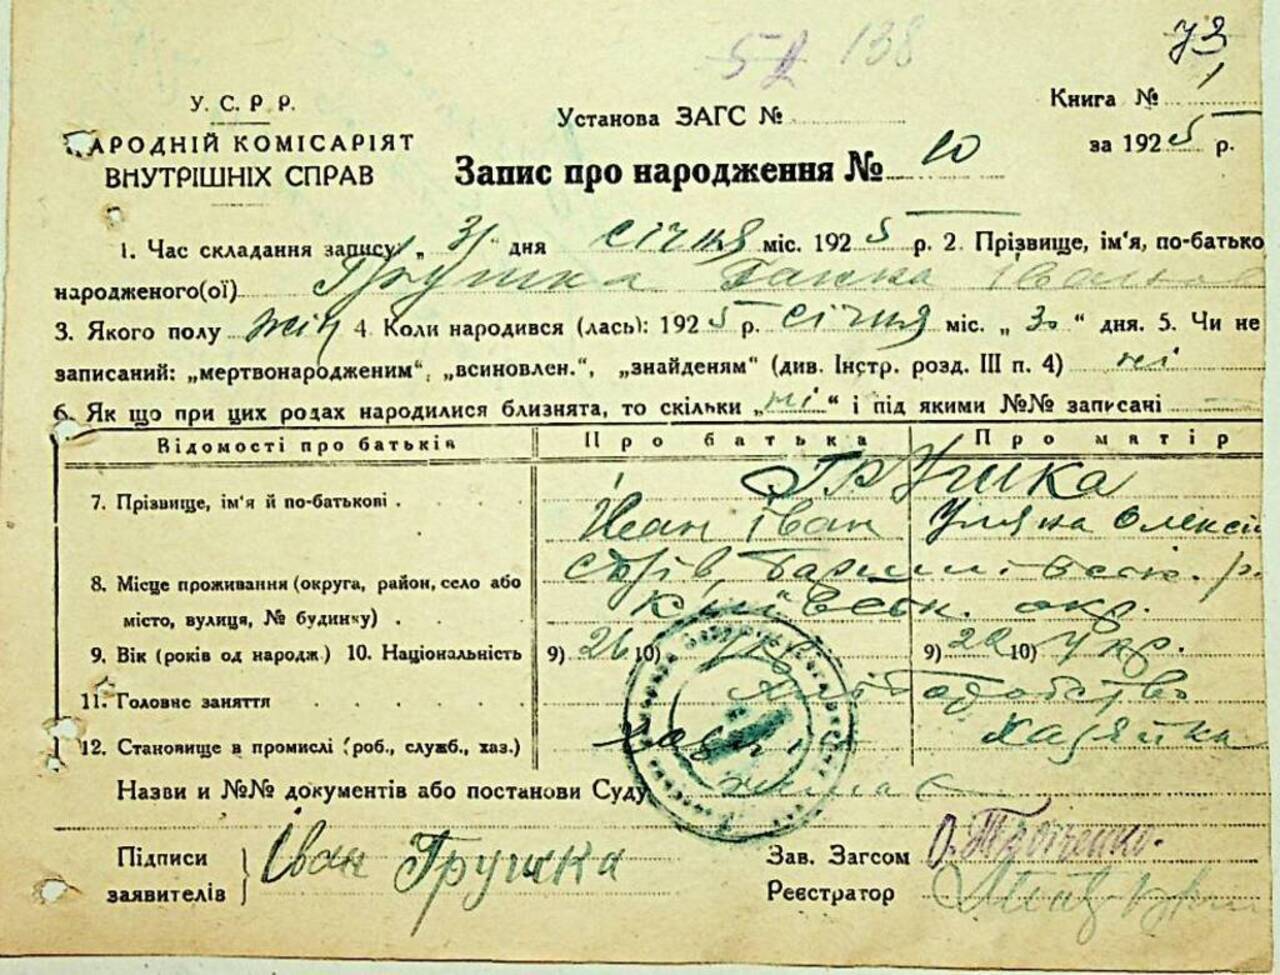 73
52 138
У. С. Р. Р.
НАРОДНІЙ КОМІСАРІЯТ
ВНУТРІШНІХ СПРАВ
Установа ЗАГС №
Книга № 1
за 1925 р.
Запис про народження № 10
1. Час складання запису „31" дня січня міс. 1925 р. 2. Прізвище, ім'я, по-батько
народженого(ої) Грушка Ганна Іванов
3. Якого полу жін 4. Коли народився (лась): 1925 р. січня міс. „30" дня. 5. Чи не
записаний: „мертвонародженим", „всиновлен.", „знайденям" (див. Інстр. розд. III п. 4) ні
6. Як що при цих родах народилися близнята, то скільки „ні" і під якими №№ записані
Відомості про батьків Про батька Про матір
7. Прізвище, ім'я й по-батькові Грушка
Іван Іван Уляна Олексії
8. Місце проживання (округа, район, село або
місто, вулиця, № будинку)
Київськ. окр.
9. Вік (років од народж.) 10. Національність 9) 26 10) укр. 9) 22 10) Укр.
11. Головне заняття Хліборобство
12. Становище в промислі (роб., служб., хаз.) Хазяїн Хазяйка
Назви и №№ документів або постанови Суду
Підписи
заявителів
Іван Грушка
Зав. Загсом
Реєстратор